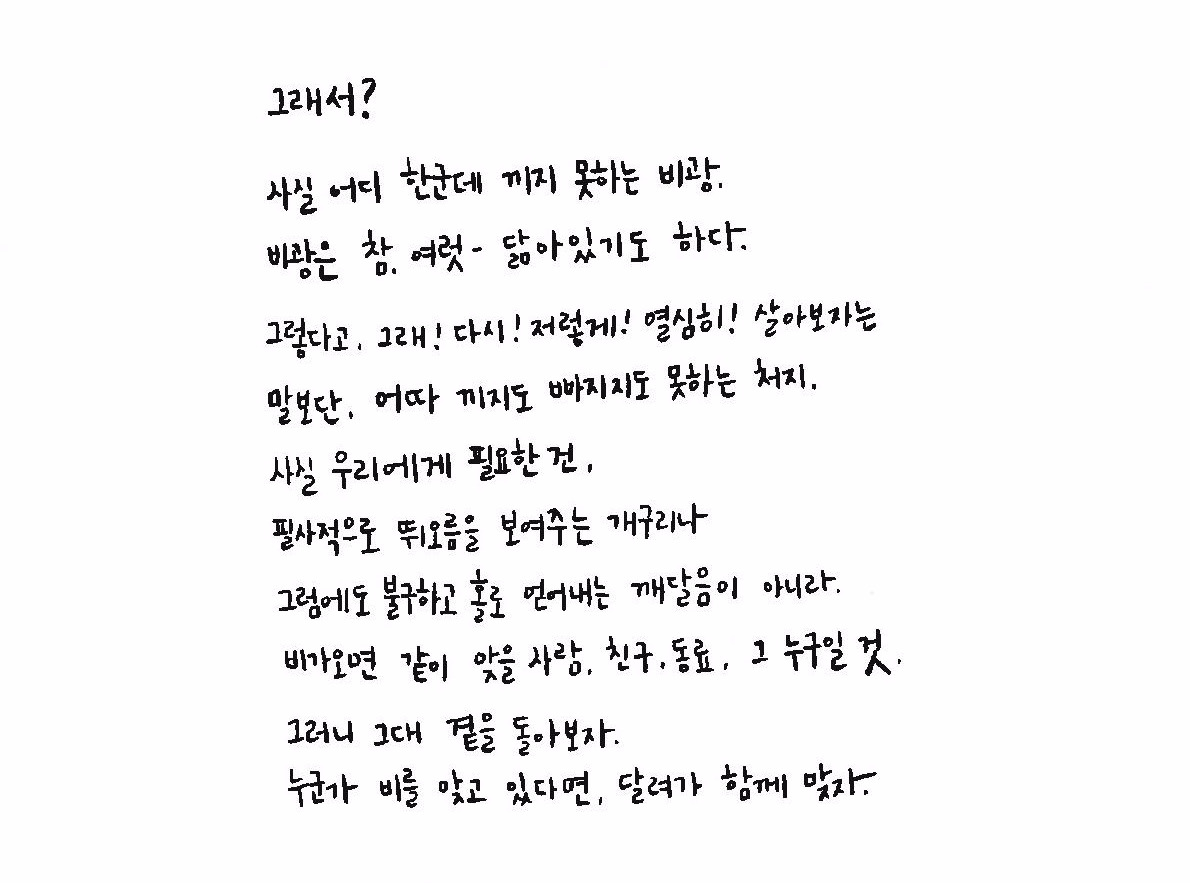 그래서?
사실 어디 한군데 끼지 못하는 비광.
비광은 참, 여럿- 닮아있기도 하다.
그렇다고, 그래! 다시! 저렇게! 열심히! 살아보자는
말보단, 어따 끼지도 빠지지도 못하는 처지.
사실 우리에게 필요한 건,
필사적으로 뛰오름을 보여주는 개구리나
그럼에도 불구하고 홀로 얻어내는 깨달음이 아니라.
비가오면 같이 맞을 사람, 친구, 동료, 그 누구일 것.
그러니 그대 곁을 돌아보자.
누군가 비를 맞고 있다면, 달려가 함께 맞자.